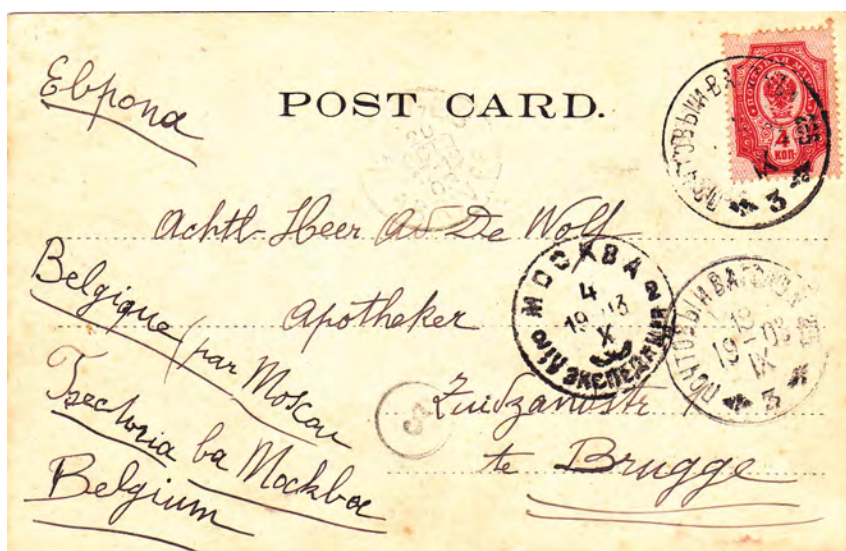 Европа
POST CARD.
4
КОП.
ПОЧТОВЫЙ ВАГОНЪ
IX
3
Achtb Heer Ad De Wolf
Apotheker
Zuidzandstr
te Brugge
Belgique (par Moscou
ba Mockba
Belgium
МОСКВА
4
19 03
X
ЭКСПЕДИЦІЯ
ПОЧТОВЫЙ ВАГОНЪ
19
19-03
IX
3